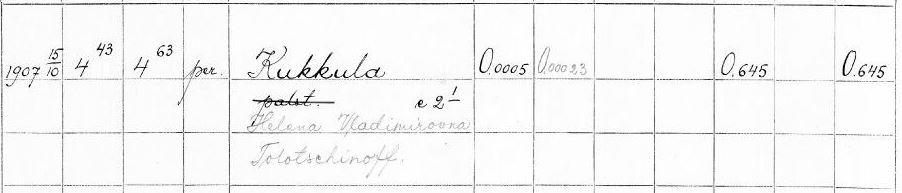 1907 15/10 4 43 4 63 per. Kukkula 0.0005 0.00023 0.645 0.645
palst. e 2 1/-
Helena Vladimirovna
Tolotschinoff.